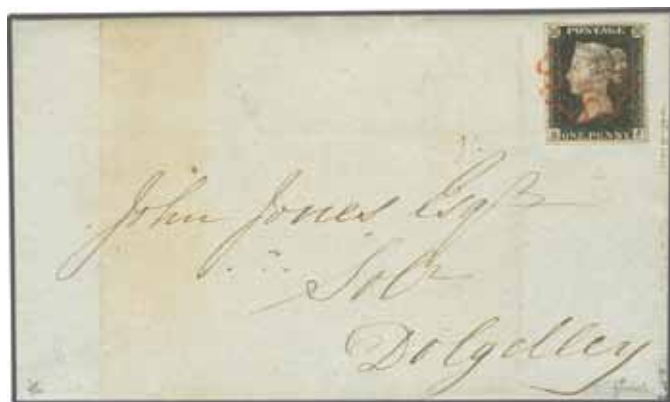 POSTAGE
ONE PENNY
John Jones Esqr
Solr
Dolgelley